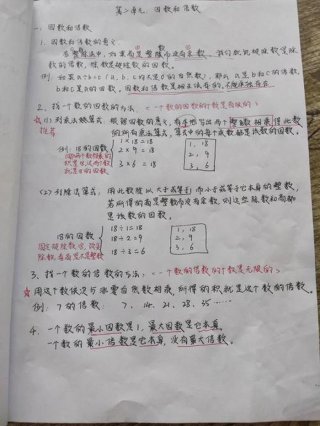 第二单元 因数和倍数
一、因数和倍数
1. 因数和倍数的意义
在整除法中，如果商是整数而没有余数，我们就说被除数是除
数的倍数，除数是被除数的因数。
例：如果a÷b=c（a、b、c均大于0的自然数），那么a是b和c的倍数，
b和c是a的因数，因数和倍数是相互依存的，不能单独存在。
2. 找一个数的因数的方法：<一个数的因数的个数是有限的>
☆(1) 列乘法算式：根据因数的意义，有序地写出两个整数相乘得此数
推荐
的所有乘法算式，算式中的每个乘数都是该数的因数。
例：18的因数
1×18=18
2×9=18
3×6=18
1, 18
2, 9
3, 6
(2) 列除法算式：用此数除以大于或等于1而小于或等于它本身的整数，
若所得的商是整数而没有余数，则这些除数和商都
是该数的因数。
18的因数
18÷1=18
18÷2=9
18÷3=6
1, 18
2, 9
3, 6
3. 找一个数的倍数的方法：<一个数的倍数的个数是无限的>
☆ 用这个数依次与非零自然数相乘，所得的积就是这个数的倍数。
例：7的倍数：7, 14, 21, 28, 35 ……
4. 一个数的最小因数是1，最大因数是它本身。
一个数的最小倍数是它本身，没有最大倍数。